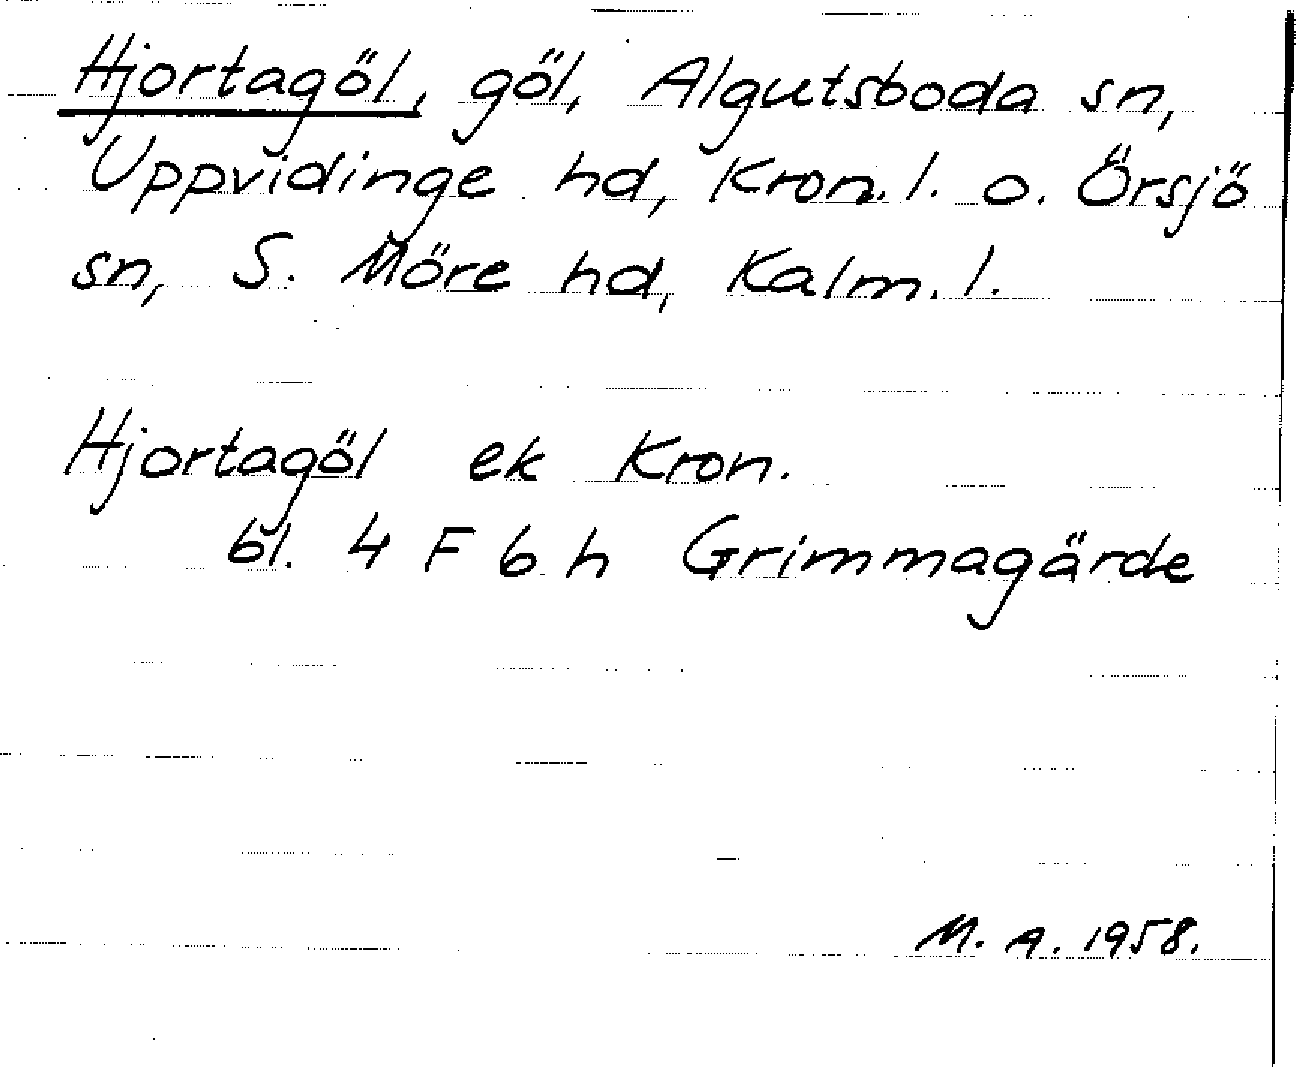 Hjortagöl, göl, Algutsboda sn,
Uppvidinge hd, Kron. l. o. Örsjö
sn, S. Möre hd, Kalm. l.
Hjortagöl ek Kron.
bl. 4 F 6 h Grimmagärde
M. A. 1958.